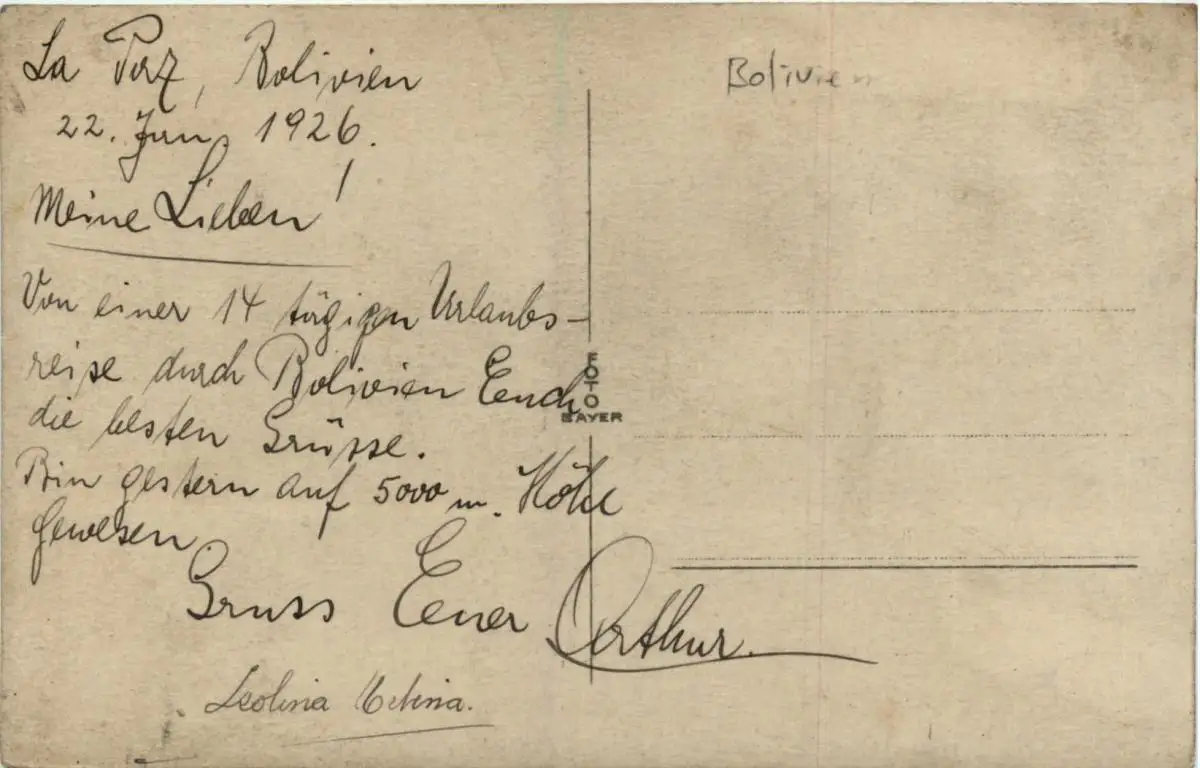 La Paz, Bolivien
22. Jun, 1926.
Meine Lieben!
Von einer 14 tägigen Urlaubs-
reise durch Bolivien Euch
die besten Grüsse.
Bin gestern auf 5000 m. Höhe
gewesen
Gruss Euer Arthur.
Bolivien
FOTO
BAYER